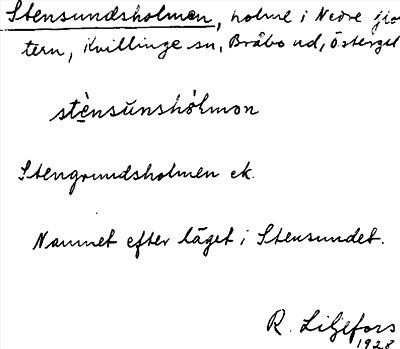 Stensundsholmen, holme i Nedre Glot-
tern, Kvillinge sn, Bråbo hd, Östergötl
stènsùnshólmən
Stengrundsholmen ek.
Namnet efter läget i Stensundet.
R. Liljefors
1928